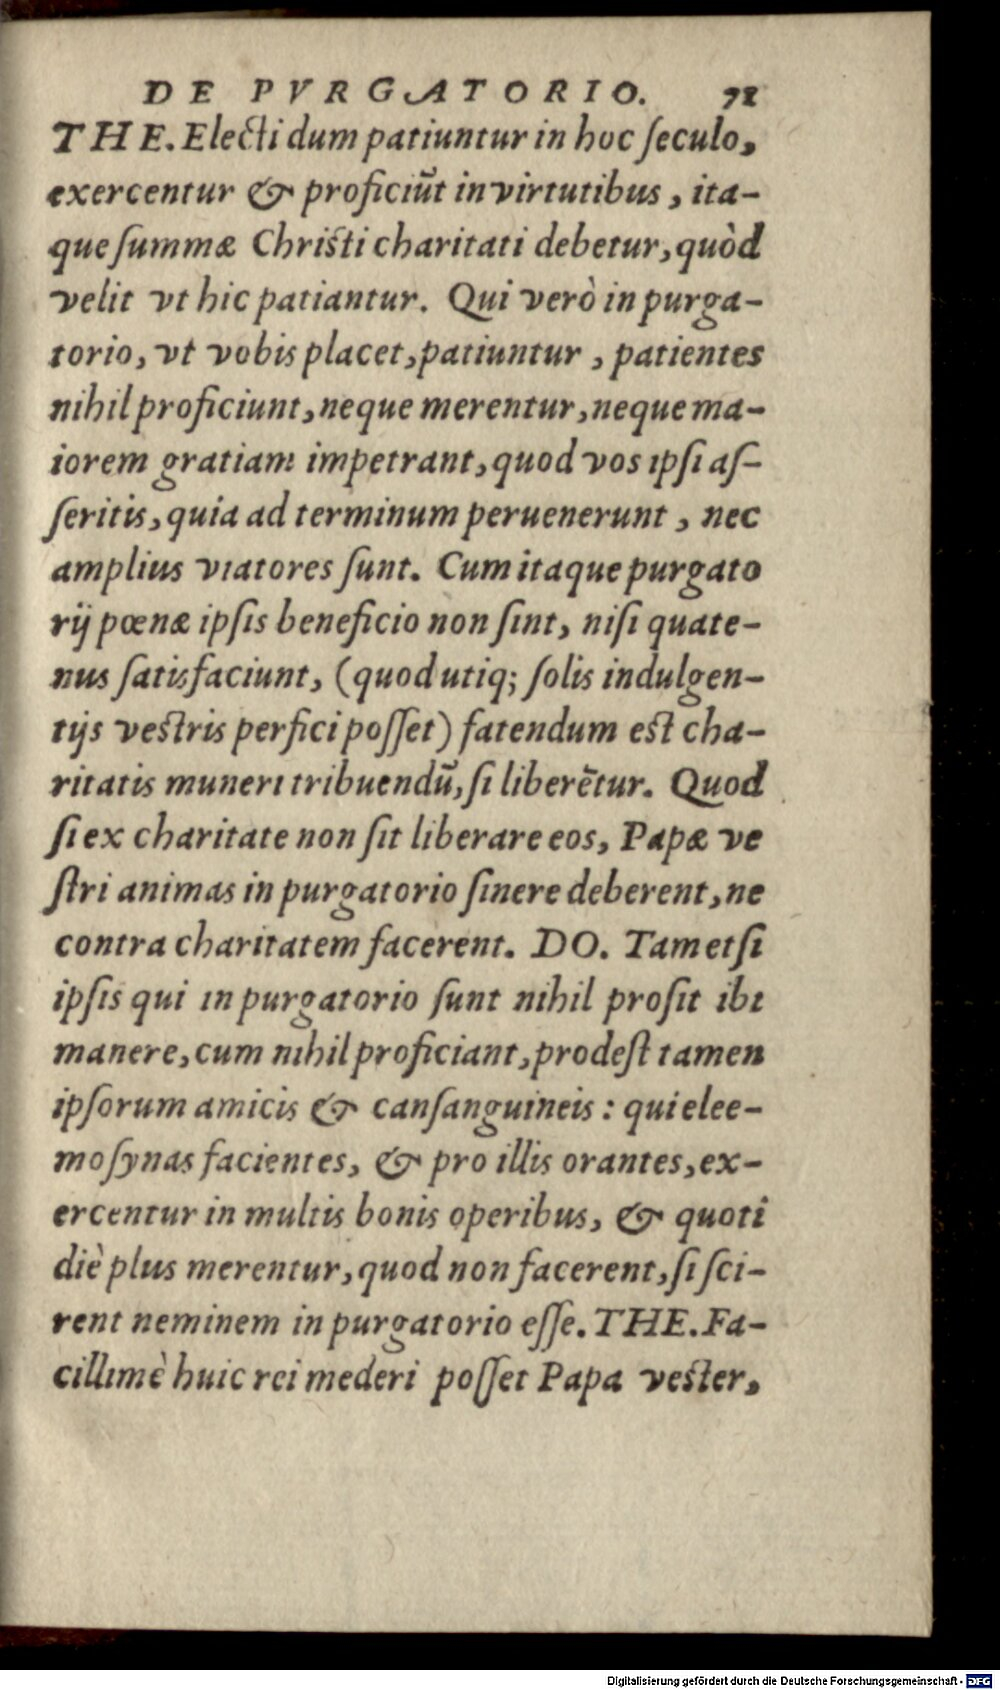 DE PVRGATORIO. 71
THE. Electi dum patiuntur in hoc ſeculo,
exercentur & proficiũt in virtutibus, ita-
que ſummæ Chriſti charitati debetur, quòd
velit vt hic patiantur. Qui verò in purga-
torio, vt vobis placet, patiuntur, patientes
nihil proficiunt, neque merentur, neque ma-
iorem gratiam impetrant, quod vos ipſi aſ-
ſeritis, quia ad terminum peruenerunt, nec
amplius viatores ſunt. Cum itaque purgato
rij pœnæ ipſis beneficio non ſint, niſi quate-
nus ſatisfaciunt, (quod utiq; ſolis indulgen-
tijs veſtris perfici poſſet) fatendum eſt cha-
ritatis muneri tribuendũ, ſi liberẽtur. Quod
ſi ex charitate non ſit liberare eos, Papæ ve
ſtri animas in purgatorio ſinere deberent, ne
contra charitatem facerent. DO. Tametſi
ipſis qui in purgatorio ſunt nihil proſit ibi
manere, cum nihil proficiant, prodeſt tamen
ipſorum amicis & canſanguineis: qui elee-
moſynas facientes, & pro illis orantes, ex-
ercentur in multis bonis operibus, & quoti
diè plus merentur, quod non facerent, ſi ſci-
rent neminem in purgatorio eſſe. THE. Fa-
cillimè huic rei mederi poſſet Papa veſter,
Digitalisierung gefördert durch die Deutsche Forschungsgemeinschaft - DFG